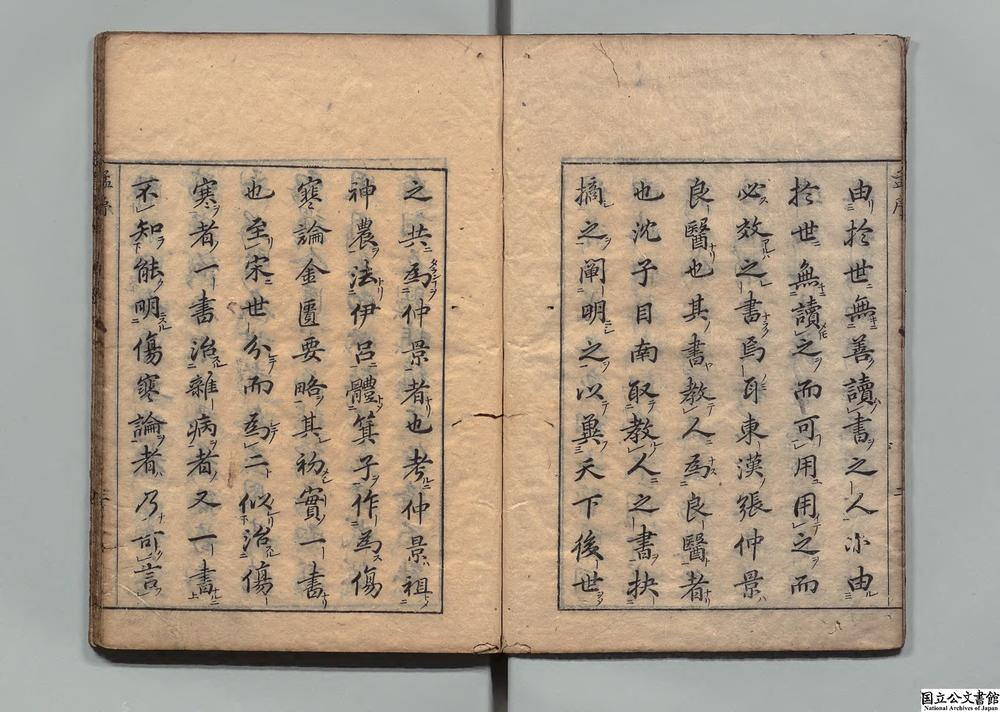 由於世無善讀書之人亦由
於世無讀之而可用用之而
必效之書焉耳東漢張仲景
良醫也其書教人為良醫者
也沈子目南取教人之書抉
摘之闡明之以冀天下後世
之共為仲景者也考仲景祖
神農法伊呂體箕子作為傷
寒論金匱要略其初實一書
也至宋世分而為二似治傷
寒者一書治雜病者又一書
不知能明傷寒論者乃可言
孟序
三
国立公文書館
National Archives of Japan